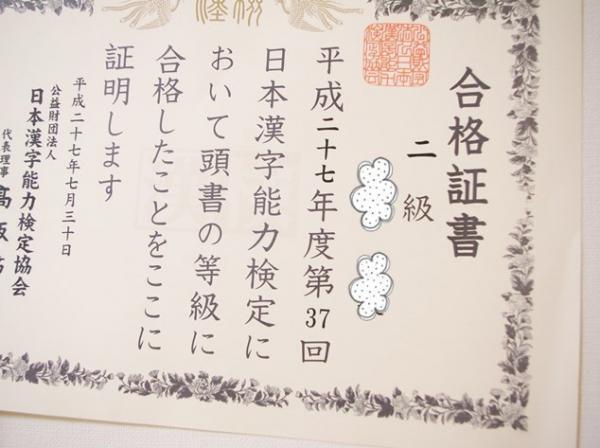 合格証書
二級
平成二十七年度第37回
日本漢字能力検定に
おいて頭書の等級に
合格したことをここに
証明します
平成二十七年七月三十日
公益財団法人
日本漢字能力検定協会
代表理事